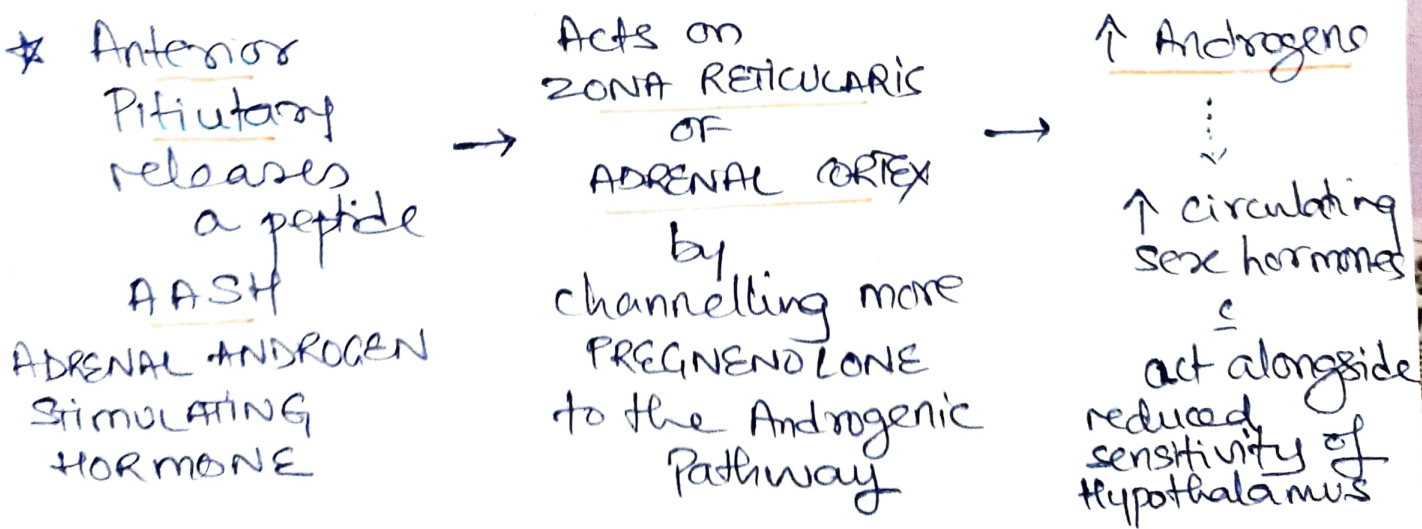 ☆ Anterior
Pitiutary
releases
a peptide
AASH
ADRENAL ANDROGEN
STIMULATING
HORMONE
→
Acts on
ZONA RETICULARIS
OF
ADRENAL CORTEX
by
channelling more
PREGNENOLONE
to the Androgenic
Pathway
→
↑ Androgens
↑ circulating
sex hormones
c̲
act alongside
reduced
sensitivity of
Hypothalamus